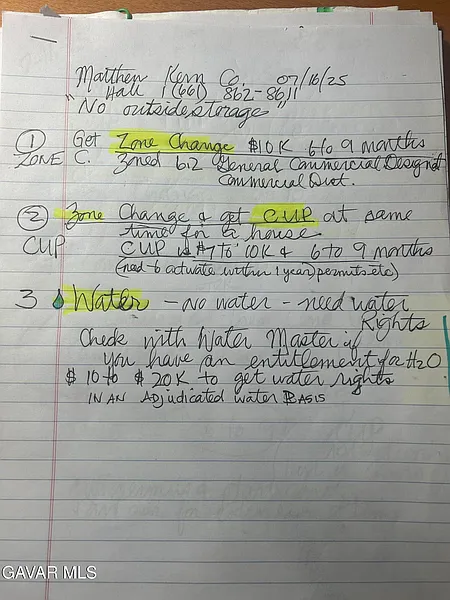 Matthew Kern Co. 07/16/25
Hall 1(661) 862-8611
"No outside storage"
① Get Zone Change $10K 6 to 9 months
ZONE C. Zoned 6.2 General Commercial Designat
Commercial Dist.
② Zone Change & get CUP at same
time for a house
CUP CUP is $7 to 10K & 6 to 9 months
(need to activate within 1 year) permits etc)
3 Water - No water - need water
Rights
Check with Water Master if
you have an entitlement for H2O
$10 to $20K to get water rights
IN AN Adjudicated water BASIS
GAVAR MLS